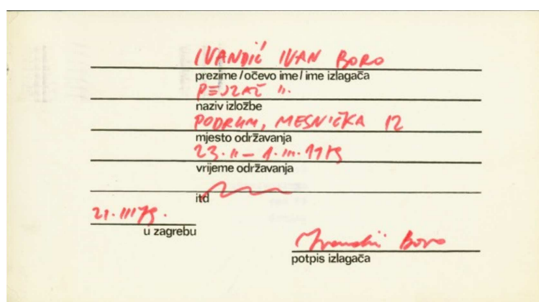 IVANDIĆ IVAN BORO
prezime / očevo ime / ime izlagača
PEJZAŽ II.
naziv izložbe
PODRUM, MESNIČKA 12
mjesto održavanja
23. II – 1. III. 1979
vrijeme održavanja
itd
21. III 79.
u zagrebu
Ivandić Boro
potpis izlagača